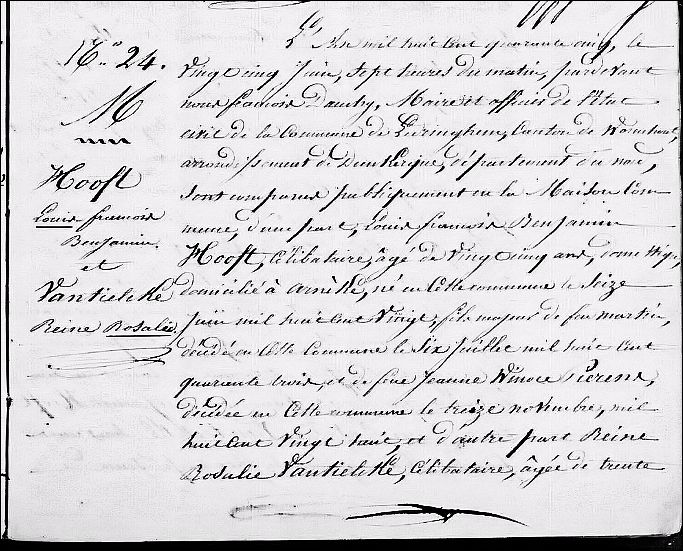 N.° 24.
M
Hooft
Louis françois
Benjamin.
et
Vantielcke
Reine Rosalie.
L'An mil huit cent quarante cinq, le
vingt cinq juin, sept heures du matin, pardevant
nous françois Dautry, Maire et officier de l'état
civil de la Commune de Ledringhem, Canton de Wormhout,
arrondissement de Dunkerque, département du nord,
sont comparus publiquement en la Maison Com-
mune, d'une part, Louis françois Benjamin
Hooft, Célibataire, âgé de vingt cinq ans,
domicilié à Arnèke, né en Cette commune le Seize
Juin mil huit cent vingt, fils majeur de feu martin,
décédé en Cette Commune le six Juillet mil huit cent
quarante trois, et de feue Jeanne Winoce Pierens,
décédée en Cette commune le treize novembre, mil
huit cent vingt huit, et d'autre part Reine
Rosalie Vantielcke, Célibataire, âgée de trente